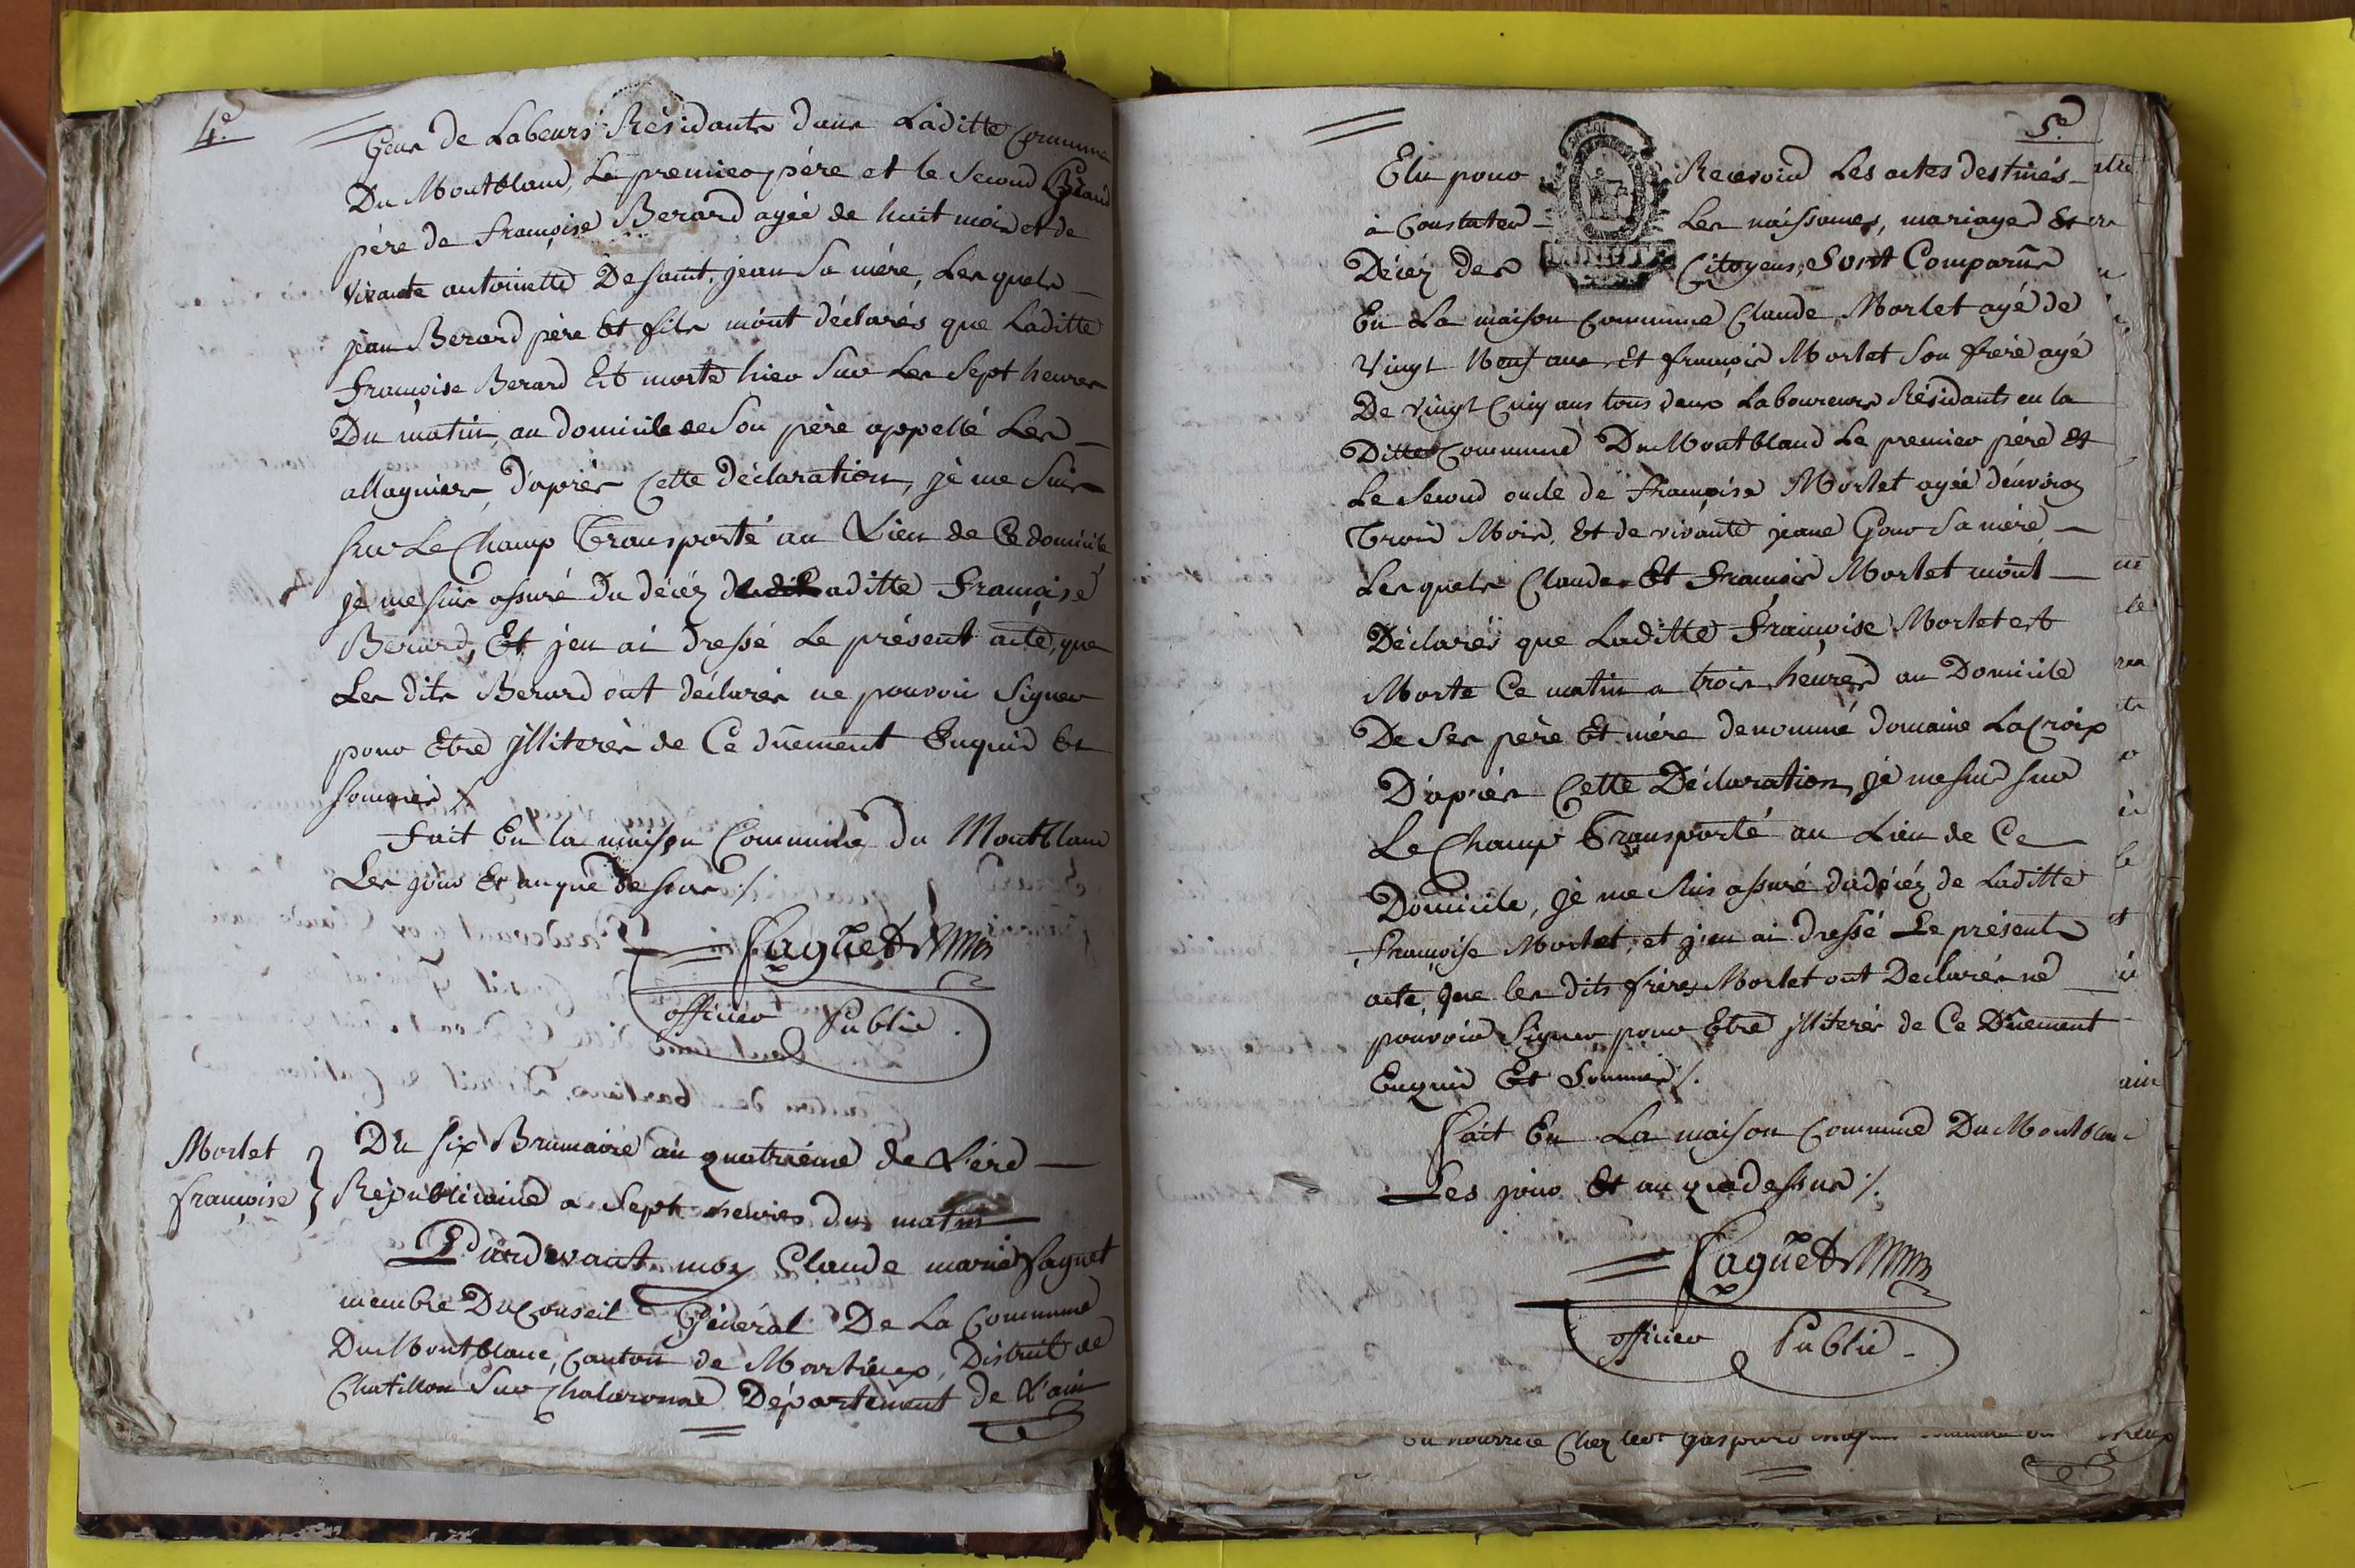 4.e
Gens de Labeurs Résidants dans Laditte Commune
Du Montbland, Le premier père et le Second Grand
père de françoise Berard agée de huit mois et de
vivante antoinette Desaint jean Sa mère, Les quels
jean Berard père Et fils m'ont déclarés que Laditte
françoise Berard Est morte hier Sur Les Sept heures
Du matin, au domicile de Son père appellé Les
allagniers, d'après Cette déclaration, je me Suis
sur Le Champ Transporté au Lieu de Ce domicile
je me suis assuré du décéz de Laditte Françoise
Berard, Et j'en ai dressé Le présent acte, que
Les dits Berard ont déclarés ne pouvoir Signer
pour Etre illiterés de Ce dûement Enquis Et
sommés ./.
Fait En la maison Commune du Montbland
Les jour Et an que dessus ./.
Paguet
officier Public.
Morlet
françoise
Du six Brumaire an quatrième de L'ére
Républicaine a Sept heures du matin
Pardevant moy Claude marie Paguet
membre Du Conseil Général De La Commune
Du Montblanc, Canton de Marlieux, District de
Chatillon Sur Chalaronne Département de L'ain
5.e
Elu pour Recevoir Les actes destinés
à Constater Les naissances, mariages Et
Décéz des Citoyens, Sont Comparûs
En La maison Commune Claude Morlet agé de
Vingt Neuf ans, Et françois Morlet Son frère agé
De vingt Cinq ans tous deux Laboureurs Résidants en la
Ditte Commune Du Montbland Le premier père Et
Le Second oncle de françoise Morlet agée d'environ
Trois Mois, Et de vivante jeane Goux Sa mère,
Lesquels Claude Et François Morlet m'ont
Déclarés que Laditte Françoise Morlet est
Morte Ce matin a trois heures au Domicile
De Ses père Et mère denommé domaine LaCroix
D'après Cette Déclaration, je me suis sur
Le Champ Transporté au Lieu de Ce
Domicile, je me Suis assuré du décéz de Laditte
françoise Morlet, et j'en ai dressé Le présent
acte, que les dits frères Morlet ont Declarés ne
pouvoir Signer pour Etre illiterés de Ce Dûement
Enquis Et Sommés ./.
Fait En La maison Commune Du Montblanc
Les jour Et an que dessus ./.
Paguet
officier Public.
En nourrice Chez